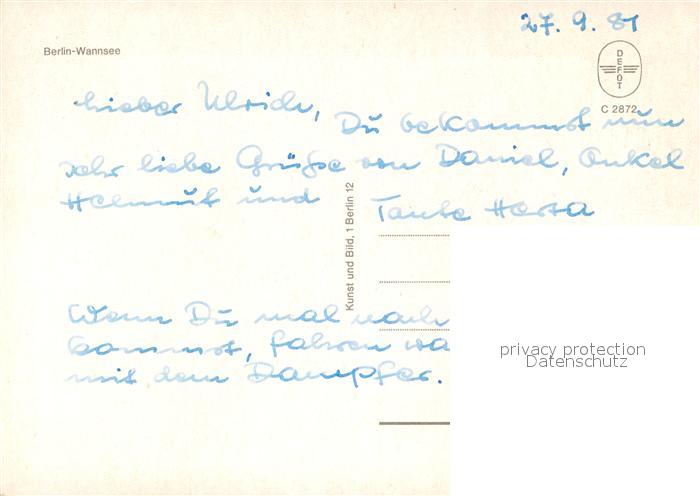 27. 9. 81
Berlin-Wannsee
DEFOT
C 2872
Lieber Ulrich,
Du bekommst nun
sehr liebe Grüße von Daniel, Onkel
Helmut und Tante Herta
Kunst und Bild, 1 Berlin 12
Wenn Du mal nach
kommst, fahren wa
mit dem Dampfer.
privacy protection
Datenschutz